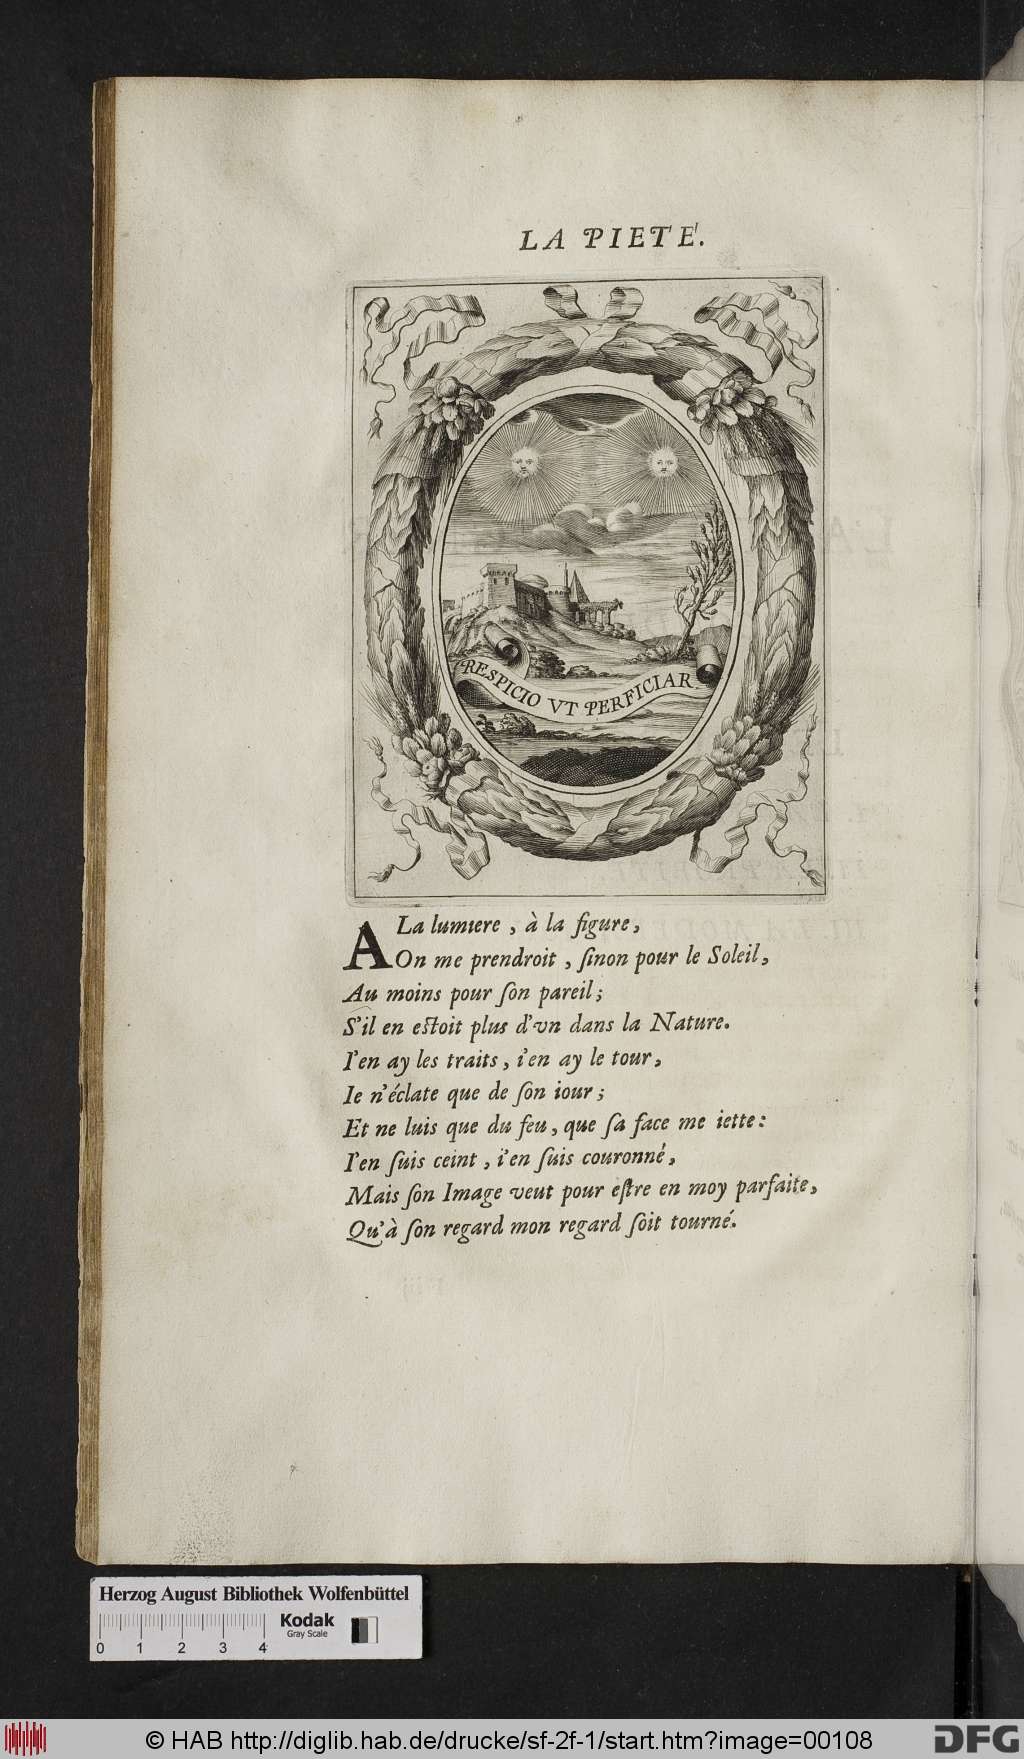 LA PIETE'.
RESPICIO VT PERFICIAR
A La lumiere, à la figure,
On me prendroit, ſinon pour le Soleil,
Au moins pour ſon pareil;
S'il en eſtoit plus d'vn dans la Nature.
I'en ay les traits, i'en ay le tour,
Ie n'éclate que de ſon iour;
Et ne luis que du feu, que ſa face me iette:
I'en ſuis ceint, i'en ſuis couronné,
Mais ſon Image veut pour eſtre en moy parfaite,
Qu'à ſon regard mon regard ſoit tourné.
Herzog August Bibliothek Wolfenbüttel
Kodak
Gray Scale
0 1 2 3 4
© HAB http://diglib.hab.de/drucke/sf-2f-1/start.htm?image=00108
DFG